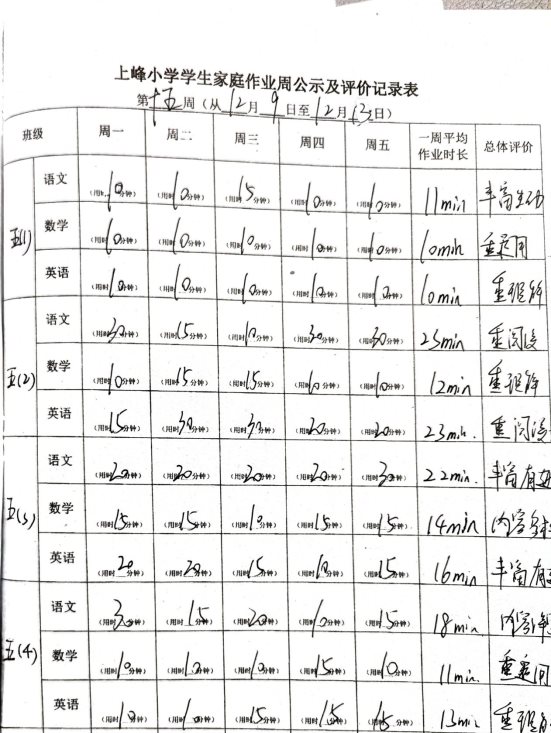 上峰小学学生家庭作业周公示及评价记录表
第十五周（从12月9日至12月13日）
班级 周一 周二 周三 周四 周五 一周平均作业时长 总体评价
五(1) 语文 （用时10分钟） （用时10分钟） （用时15分钟） （用时10分钟） （用时10分钟） 11min 丰富生动
数学 （用时10分钟） （用时10分钟） （用时10分钟） （用时10分钟） （用时10分钟） 10min 重运用
英语 （用时10分钟） （用时10分钟） （用时10分钟） （用时10分钟） （用时10分钟） 10min
五(2) 语文 （用时30分钟） （用时15分钟） （用时10分钟） （用时30分钟） （用时30分钟） 23min 重阅读
数学 （用时10分钟） （用时15分钟） （用时15分钟） （用时10分钟） （用时10分钟） 12min
英语 （用时15分钟） （用时30分钟） （用时30分钟） （用时20分钟） （用时20分钟） 23min. 重阅读
五(3) 语文 （用时20分钟） （用时20分钟） （用时20分钟） （用时20分钟） （用时30分钟） 22min. 丰富有
数学 （用时15分钟） （用时15分钟） （用时10分钟） （用时15分钟） （用时15分钟） 14min 内容
英语 （用时20分钟） （用时20分钟） （用时15分钟） （用时10分钟） （用时15分钟） 16min 丰富有
五(4) 语文 （用时30分钟） （用时15分钟） （用时20分钟） （用时10分钟） （用时15分钟） 18min 内容
数学 （用时10分钟） （用时10分钟） （用时10分钟） （用时15分钟） （用时10分钟） 11min.
英语 （用时10分钟） （用时10分钟） （用时15分钟） （用时15分钟） （用时15分钟） 13min